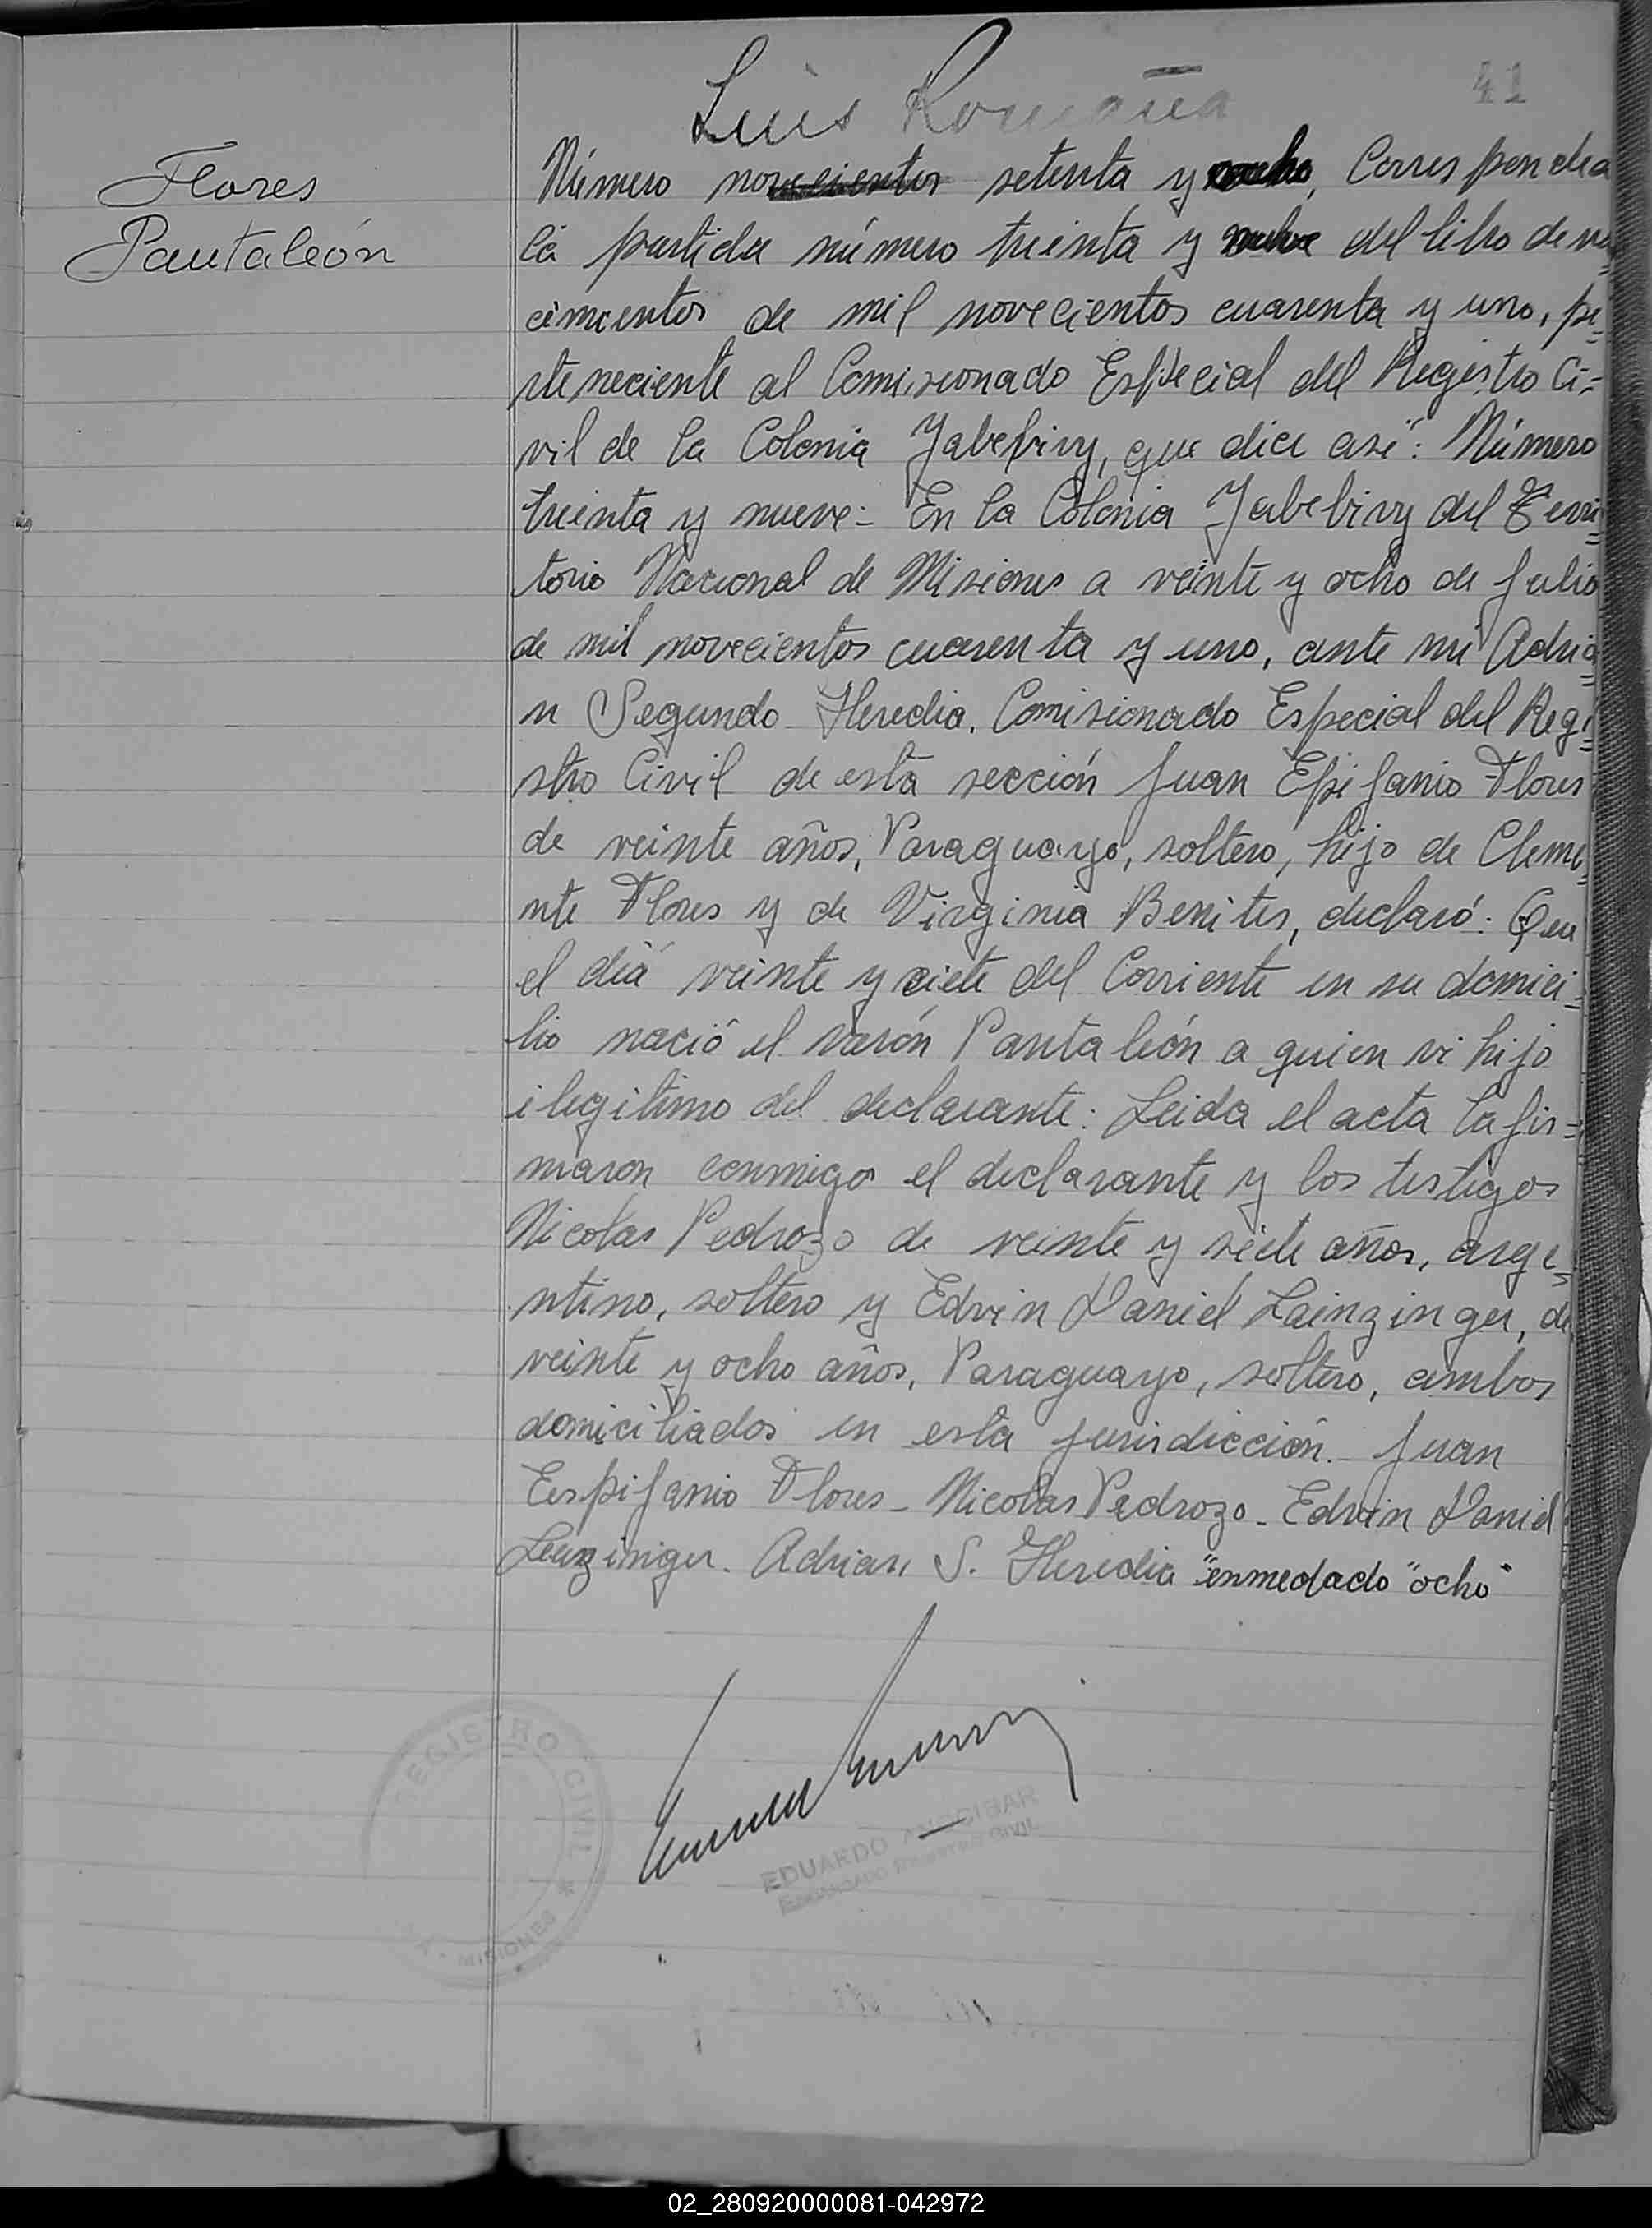 Luis Romaña
41
Flores
Pantaleón
Número novecientos setenta y ocho, Corresponde a
la partida número treinta y nueve del libro de na
cimientos de mil novecientos cuarenta y uno, pe-
rteneciente al Comisionado Especial del Registro Ci=
vil de la Colonia Yabebiry, que dice asi": Número
treinta y nueve:- En la Colonia Yabebiry del Terri=
torio Nacional de Misiones a veinte y ocho de Julio
de mil novecientos cuarenta y uno, ante mi Adria=
n Segundo Heredia. Comisionado Especial del Regi=
stro Civil de esta sección Juan Epifanio Flores
de veinte años, Paraguayo, soltero, hijo de Cleme=
nte Flores y de Virginia Benites, declaró: Que
el dia veinte y ciete del Corriente en su domici=
lio nació el varón Pantaleón a quien vi hijo
ilegitimo del declarante: Leida el acta la fir=
maron conmigo el declarante y los testigos
Nicolas Pedrozo de veinte y siete años, arge=
ntino, soltero y Edvin Daniel Lainzinger, de
veinte y ocho años, Paraguayo, soltero, ambos
domiciliados en esta jurisdicción. Juan
Eespifanio Flores - Nicolas Pedrozo - Edvin Daniel
Leinzinger. Adrian S. Heredia "enmedado "ocho"
REGISTRO CIVIL
MISIONES
EDUARDO ANOCIBAR
ENCARGADO REGISTRO CIVIL
02_280920000081-042972